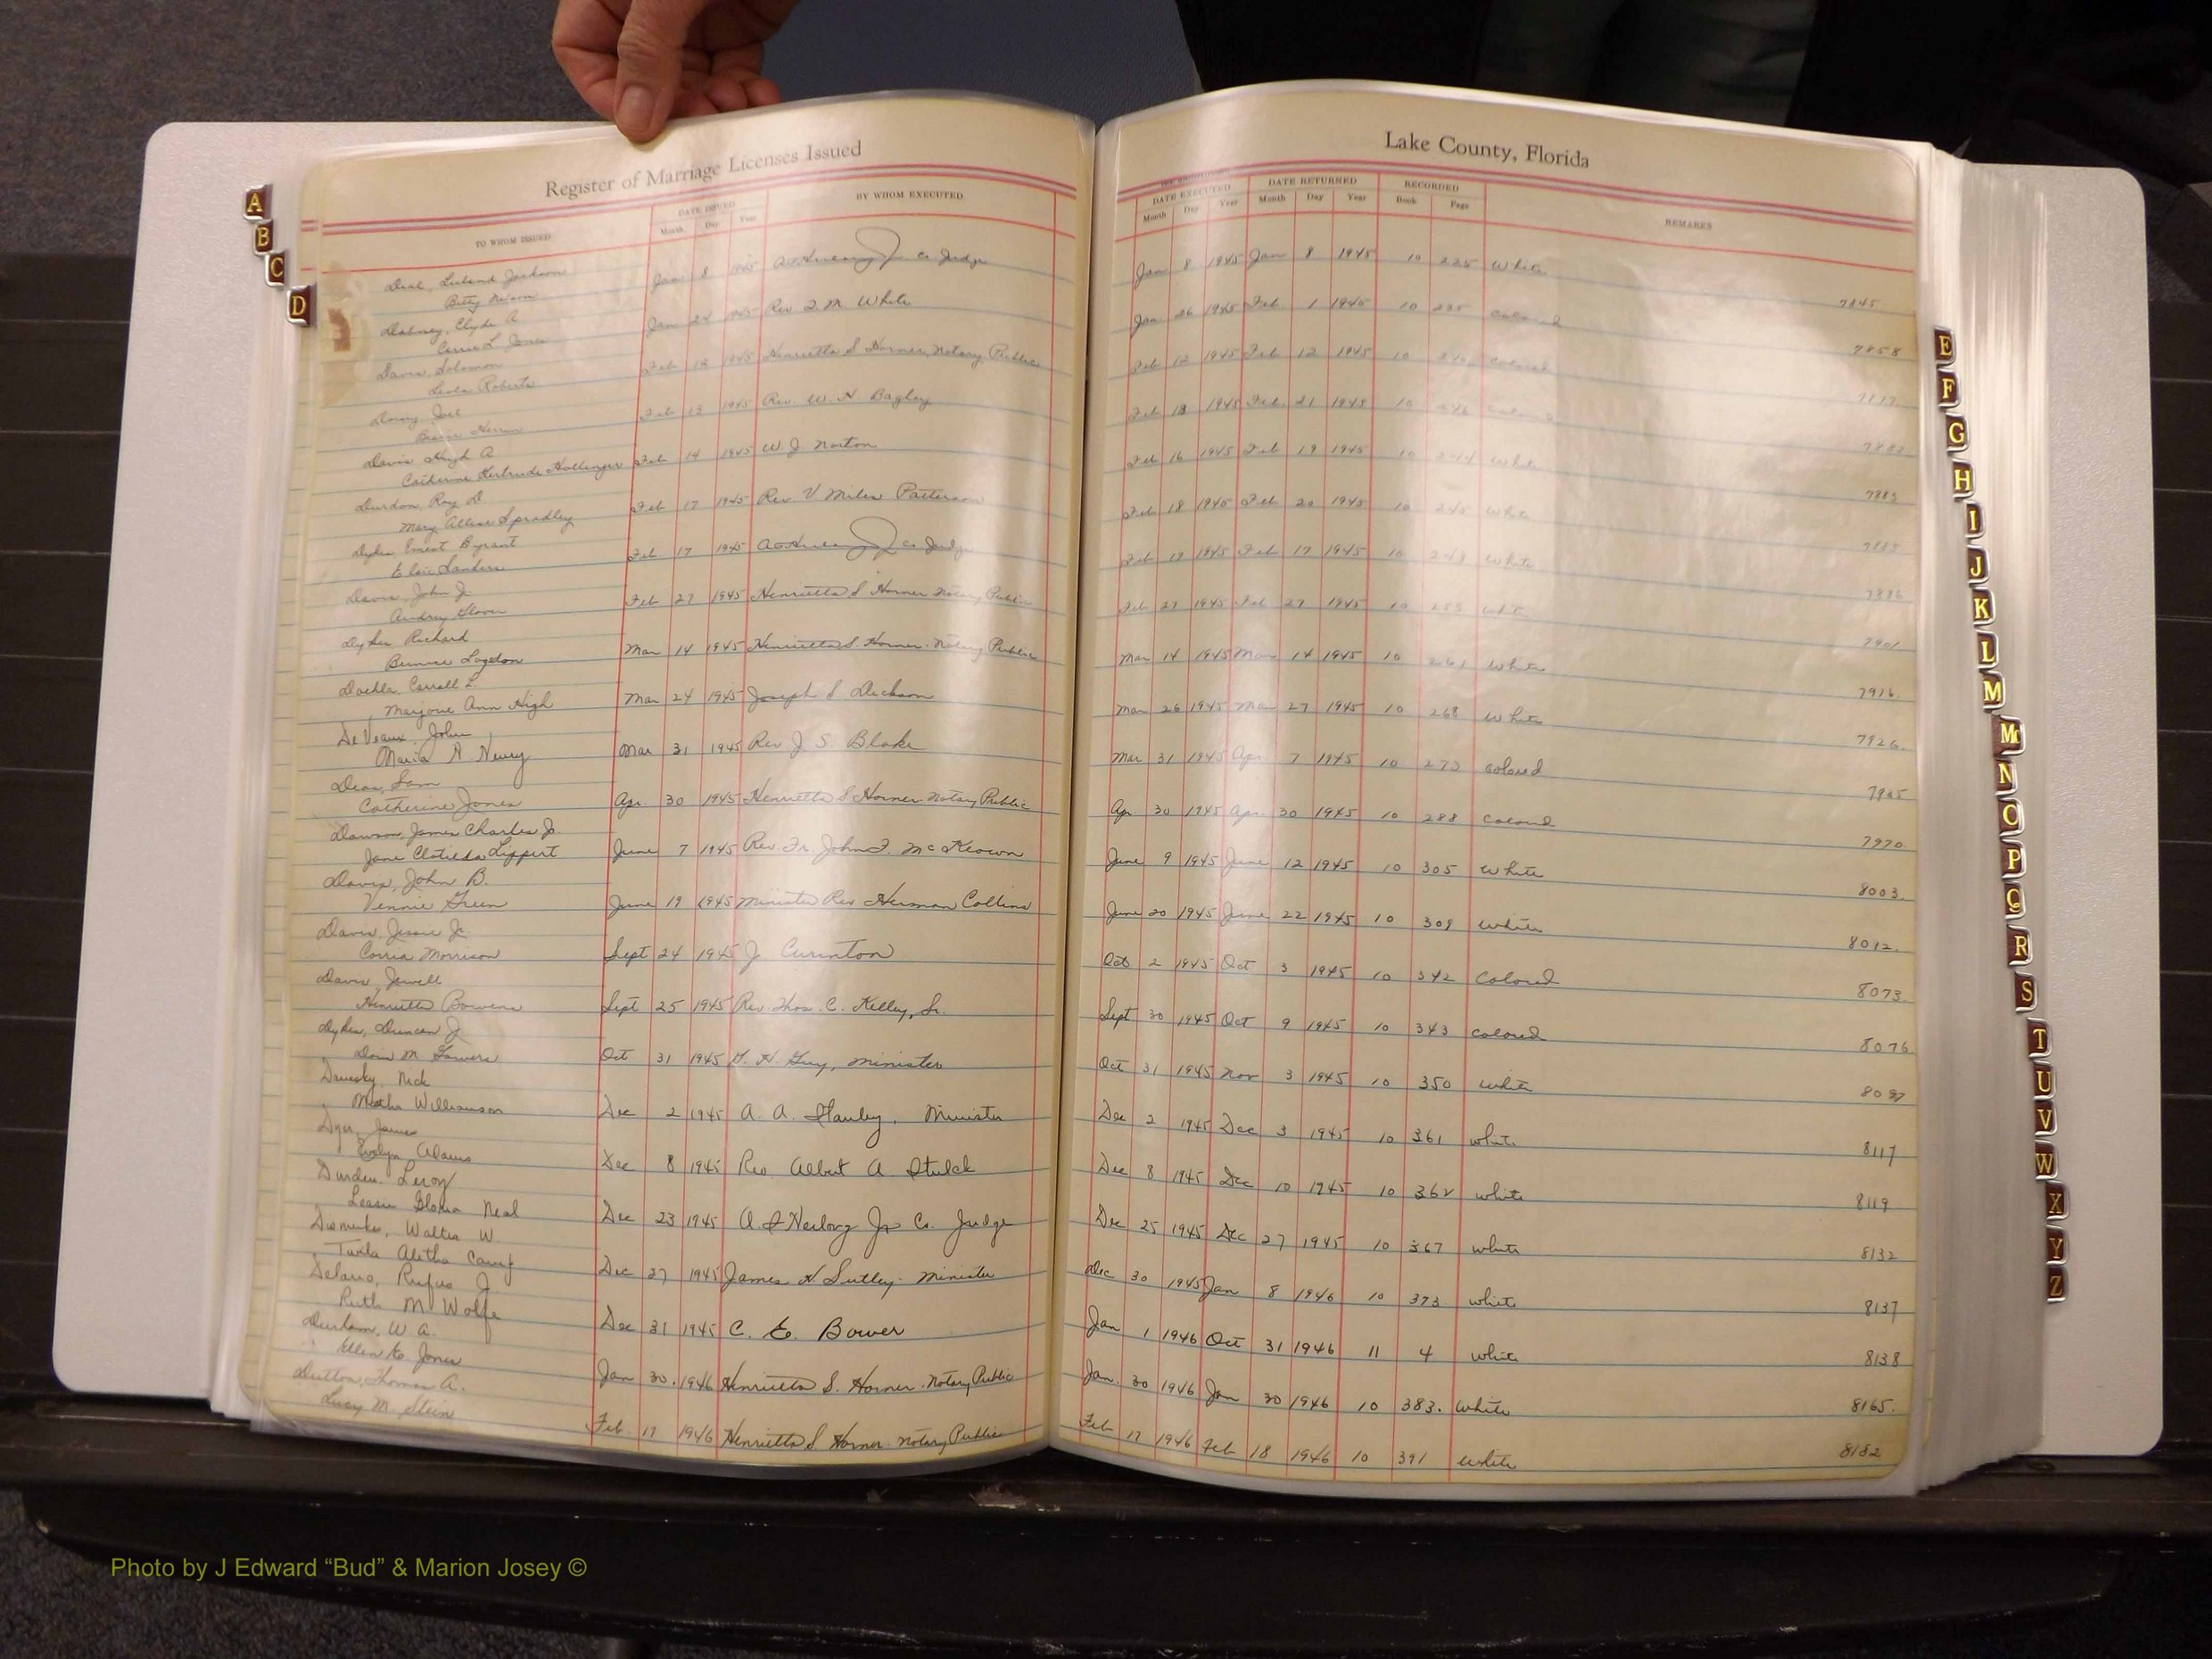 Register of Marriage Licenses Issued
Lake County, Florida
TO WHOM ISSUED
DATE ISSUED
Month Day Year
BY WHOM EXECUTED
DATE EXECUTED
Month Day Year
DATE RETURNED
Month Day Year
RECORDED
Book Page
REMARKS
A
B
C
D
Deal, Leland Jackson
Betty
Jan 8 1945 Co Judge Jan 8 1945 Jan 8 1945 10 225 White 7845
Clyde A
Carrie L. Jones
Jan 24 1945 Rev White Jan 26 1945 Feb 1 1945 10 235 Colored 7858
Davis, Solomon
Leola Roberts
Feb 1945 Henrietta S Horner, Notary Public Feb 12 1945 Feb 12 1945 10 Colored
Joe
Feb 13 1945 Rev. W. H. Bagley Feb 18 1945 Feb. 21 1945 10 Colored
Davis Hugh A
Catherine Gertrude Hollinger
Feb 14 1945 W J Norton Feb 16 1945 Feb 19 1945 10 244 White
Durdon, Roy D
Mary Allene Spradley
Feb 17 1945 Rev. V Miles Patterson Feb 18 1945 Feb 20 1945 10 245 White
Dykes, Ernest Byrant
Elsie Sanders
Feb 17 1945 Co Judge Feb 17 1945 Feb 17 1945 10 243 White 7886
Davis, John J.
Audrey Glover
Feb 27 1945 Henrietta S Horner Notary Public Feb 27 1945 Feb 27 1945 10 White 7901
Dykes Richard
Bernice Logdon
Mar 14 1945 Henrietta S. Horner. Notary Public Mar 14 1945 Mar 14 1945 10 261 White 7916.
Carroll L
Marjorie Ann High
Mar 24 1945 Joseph S Dickson Mar 26 1945 Mar 27 1945 10 268 White 7926.
De Veaux John
Maria A. Newry
Mar 31 1945 Rev J S. Blake Mar 31 1945 Apr 7 1945 10 273 Colored
Dean, Sam
Catherine Jones
Apr 30 1945 Henrietta S Horner. Notary Public Apr 30 1945 Apr 30 1945 10 288 Colored 7970.
Dawson, James Charles Jr.
Jane Clotilda Lippert
June 7 1945 Rev. Fr. John F. McKeown June 9 1945 June 12 1945 10 305 White 8003.
Davis, John B.
Vennie Green
June 19 1945 Minister Rev Herman Collins June 20 1945 June 22 1945 10 309 White 8012.
Davis, Jessie Jr.
Corria Morrison
Sept 24 1945 J. Curinton Oct 2 1945 Oct 3 1945 10 342 Colored 8073.
Davis Jewell
Henrietta Bowens
Sept 25 1945 Rev. Thos. C. Kelley, Sr. Sept 30 1945 Oct 9 1945 10 343 Colored 8076
Dykes, Duncan J.
Doris M.
Oct 31 1945 Guy, Minister Oct 31 1945 Nov 3 1945 10 350 White 8097
Nick
Williamson
Dec 2 1945 A. A. Minister Dec 2 1945 Dec 3 1945 10 361 White 8117
Dyer, James
Evelyn Adams
Dec 8 1945 Rev Albert A. Dec 8 1945 Dec 10 1945 10 362 White 8119
Durden. Leroy
Gloria Neal
Dec 23 1945 Jr Co. Judge Dec 25 1945 Dec 27 1945 10 367 White 8132
Walter W.
Aletha Camp
Dec 27 1945 James H Minister Dec 30 1945 Jan 8 1946 10 373 White 8137
Rufus J.
Ruth M Wolfe
Dec 31 1945 C. E. Bower Jan 1 1946 Oct 31 1946 11 4 White 8138
Durham, W A.
Ellen E. Jones
Jan 30. 1946 Henrietta S. Horner. Notary Public Jan. 30 1946 Jan 30 1946 10 383. White 8165.
Dutton, Thomas A.
Lucy M. Stein
Feb 17 1946 Henrietta S Horner. Notary Public Feb 17 1946 Feb 18 1946 10 391 White 8182
E
F
G
H
I
J
K
L
M
Mc
N
O
P
Q
R
S
T
U
V
W
X
Y
Z
Photo by J Edward “Bud” & Marion Josey ©